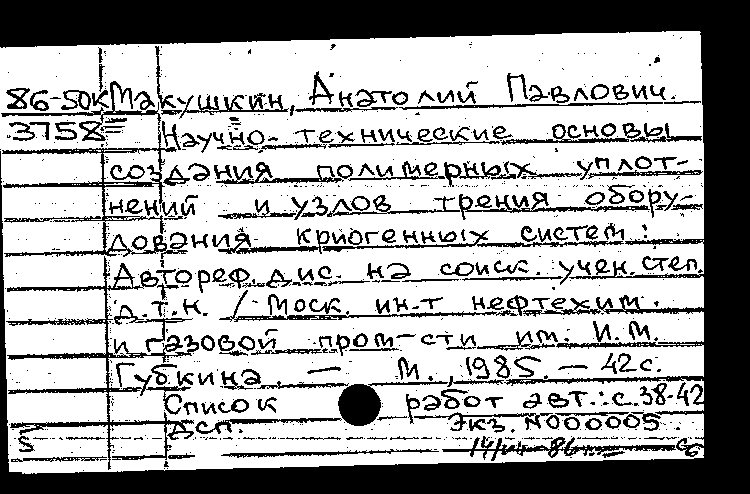 86-50к Макушкин, Анатолий Павлович.
3758 Научно-технические основы
создания полимерных уплот-
нений и узлов трения обору-
дования криогенных систем:
Автореф. дис. на соиск. учен. степ.
д.т.н. / Моск. ин-т нефтехим.
и газовой пром-сти им. И.М.
Губкина. — М., 1985. — 42 с.
Список работ авт.: с. 38-42
ДСП. Экз. N000005.